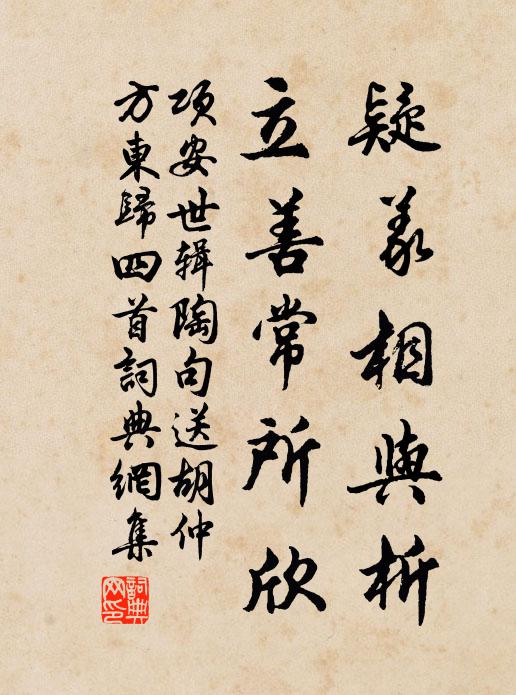 疑義相與析
立善常所欣
項安世輯陶句送胡仲
方東歸四首詞典網集
詞典
网印